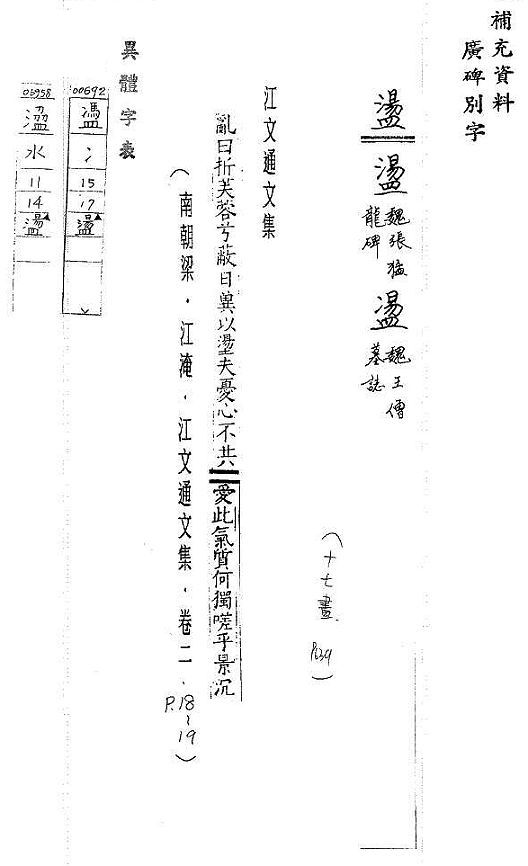 補充資料
廣碑別字
盪
盪 魏張猛龍碑
盪 魏王僧墓誌
(十七畫 P.239)
江文通文集
亂曰折芙蓉兮蔽日冀以盪夫憂心不共愛此氣質何獨嗟乎景沉
(南朝梁.江淹.江文通文集.卷二.P.18~19)
異體字表
00692
冫
15
17
盪
05958
水
11
14
盪